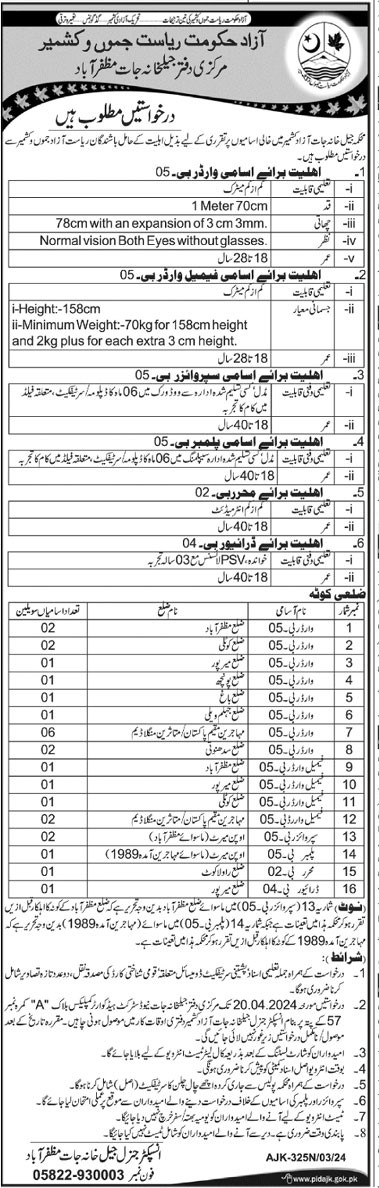 آزاد حکومت ریاست جموں و کشمیر
مرکزی دفتر جیلخانہ جات مظفرآباد
درخواستیں مطلوب ہیں
محکمہ جیل خانہ جات آزاد کشمیر میں خالی اسامیوں پر تقرری کے لیے بذیل اہلیت کے حامل باشندگان ریاست آزاد جموں و کشمیر سے
درخواستیں مطلوب ہیں۔
1۔ اہلیت برائے اسامی وارڈر بی۔05
i- تعلیمی قابلیت کم از کم میٹرک
ii- قد 1 Meter 70cm
iii- چھاتی 78cm with an expansion of 3 cm 3mm.
iv- نظر Normal vision Both Eyes without glasses.
v- عمر 18 تا 28 سال
2۔ اہلیت برائے اسامی فیمیل وارڈر بی۔05
i- تعلیمی قابلیت کم از کم میٹرک
ii- جسمانی معیار i-Height:-158cm
ii-Minimum Weight:-70kg for 158cm height
and 2kg plus for each extra 3 cm height.
iii- عمر 18 تا 28 سال
3۔ اہلیت برائے اسامی سپروائزر بی۔05
i- تعلیمی و فنی قابلیت مڈل، کسی تسلیم شدہ ادارہ سے ووڈ ورک میں 06 ماہ کا ڈپلومہ/سرٹیفکیٹ، متعلقہ فیلڈ
میں کام کا تجربہ
ii- عمر 18 تا 40 سال
4۔ اہلیت برائے اسامی پلمبر بی۔05
i- تعلیمی و فنی قابلیت مڈل، کسی تسلیم شدہ ادارہ سے پلمبنگ میں 06 ماہ کا ڈپلومہ/سرٹیفکیٹ، متعلقہ فیلڈ میں کام کا تجربہ
ii- عمر 18 تا 40 سال
5۔ اہلیت برائے محرر بی۔02
i- تعلیمی قابلیت کم از کم انٹرمیڈیٹ
ii- عمر 18 تا 40 سال
6۔ اہلیت برائے ڈرائیور بی۔04
i- تعلیمی و فنی قابلیت خواندہ، PSV لائسنس مع 03 سالہ تجربہ
ii- عمر 18 تا 40 سال
ضلعی کوٹہ
نمبر شمار نام آسامی نام ضلع تعداد اسامیاں سویلین
1 وارڈر بی۔05 ضلع مظفرآباد 02
2 وارڈر بی۔05 ضلع کوٹلی 02
3 وارڈر بی۔05 ضلع میرپور 01
4 وارڈر بی۔05 ضلع پونچھ 01
5 وارڈر بی۔05 ضلع باغ 01
6 وارڈر بی۔05 ضلع جہلم ویلی 01
7 وارڈر بی۔05 مہاجرین مقیم پاکستان/متاثرین منگلا ڈیم 06
8 وارڈر بی۔05 ضلع سدھنوتی 02
9 فیمیل وارڈر بی۔05 ضلع مظفرآباد 01
10 فیمیل وارڈر بی۔05 ضلع میرپور 01
11 فیمیل وارڈر بی۔05 ضلع کوٹلی 01
12 فیمیل وارڈر بی۔05 مہاجرین مقیم پاکستان/متاثرین منگلا ڈیم 02
13 سپروائزر بی۔05 اوپن میرٹ (ماسوائے مظفرآباد) 02
14 پلمبر بی۔05 اوپن میرٹ (ماسوائے مہاجرین آمدہ 1989) 01
15 محرر بی۔02 ضلع راولاکوٹ 01
16 ڈرائیور بی۔04 ضلع میرپور 01
نوٹ: شمار یہ 13 (سپروائزر بی۔05) میں ماسوائے ضلع مظفرآباد بدیں وجہ تحریر ہے کہ ضلع مظفرآباد کے کوٹہ کا اہلکار قبل ازیں
تقرر ہو کر محکمہ ہذا میں تعینات ہے جبکہ شمار یہ 14 (پلمبر بی۔05) میں ماسوائے (مہاجرین آمدہ 1989) بدیں وجہ تحریر ہے کہ
مہاجرین آمدہ 1989 کے کوٹہ کا اہلکار قبل ازیں تقرر ہو کر محکمہ ہذا میں تعینات ہے۔
شرائط:
1۔ درخواست کے ہمراہ جملہ تعلیمی اسناد پشتینی سرٹیفکیٹ ڈومیسائل متعلقہ قومی شناختی کارڈ کی مصدقہ نقل، دو عدد تازہ تصاویر شامل
کرنا ضروری ہوگا۔
2۔ درخواستیں مورخہ 20.04.2024 تک مرکزی دفتر جیلخانہ جات نیو ڈسٹرکٹ ہیڈ کوارٹر کمپلیکس بلاک "A" کمرہ نمبر
57 کے پتہ پر بنام انسپکٹر جنرل جیل خانہ جات آزاد کشمیر دفتری اوقات کار میں موصول ہونی چاہیں۔ مقررہ تاریخ کے بعد
موصولہ/نامکمل درخواستیں زیر غور نہیں لائی جائیں گی۔
3۔ امیدواران کو شارٹ لسٹنگ کے بعد بذریعہ کال لیٹر ٹیسٹ انٹرویو کے لیے بلایا جائے گا۔
4۔ بوقت انٹرویو اصل اسناد ہمراہ لانا ضروری ہوگی۔
5۔ درخواست کے ہمراہ محکمہ پولیس سے جاری کردہ اچھے چال چلن کا سرٹیفکیٹ (اصل) شامل کرنا ہوگا۔
6۔ سپروائزر اور پلمبر کی اسامیوں کے خلاف درخواست دینے والے امیدواران سے موقع پر عملی امتحان لیا جائے گا۔
7۔ ٹیسٹ انٹرویو کے لیے آنے والے امیدواران کو یومیہ بھتہ/سفر خرچ نہیں دیا جائے گا۔
8۔ پابندی وقت ضروری ہے۔ دیر سے آنے والے امیدواران کو شامل ٹیسٹ نہیں کیا جائے گا۔
انسپکٹر جنرل جیل خانہ جات مظفرآباد
فون نمبر 05822-930003
AJK-325N/03/24
www.pidajk.gok.pk